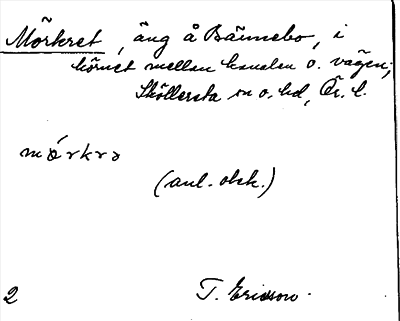 Mörkret, äng å Bännebo, i
hörnet mellan kanalen o. vägen;
Sköllersta sn o. hd, Ör. l.
mǿrkrə
(anl. obek.)
2 T. Ericsson.